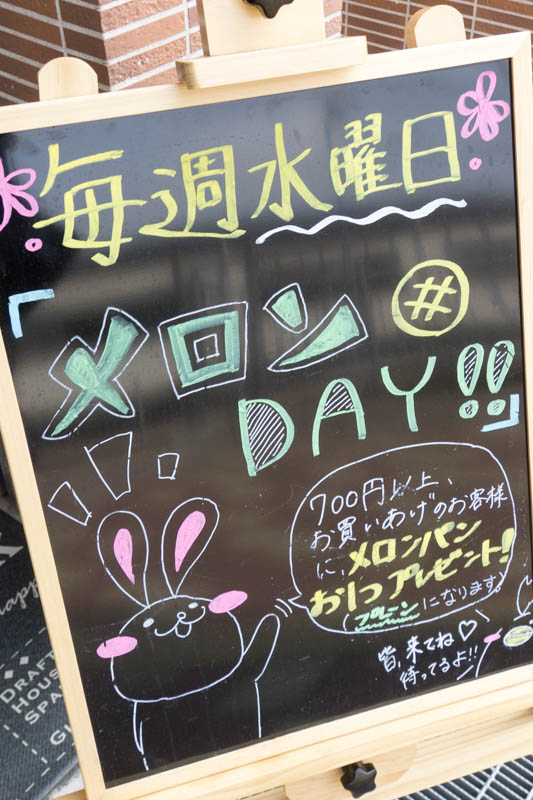 毎週水曜日
「メロン
DAY!!」
700円以上、
お買いあげのお客様
に、メロンパン
お1つプレゼント!
プレーンになります。
皆、来てね♡
待ってるよ!!
happy
DRAFT
HOUS
SPA